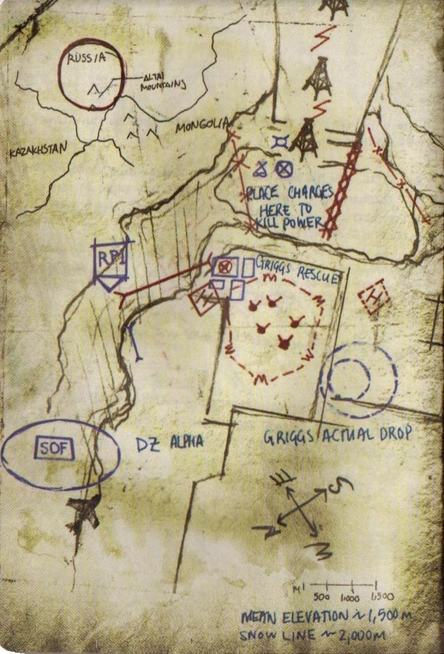 RUSSIA
ALTAI
MOUNTAINS
KAZAKHSTAN
MONGOLIA
PLACE CHARGES
HERE TO
KILL POWER
RP1
GRIGGS RESCUE
H
H
SOF
DZ ALPHA
GRIGGS ACTUAL DROP
E
S
N
W
M
500
1000
1500
MEAN ELEVATION ~ 1,500M
SNOW LINE ~ 2,000M